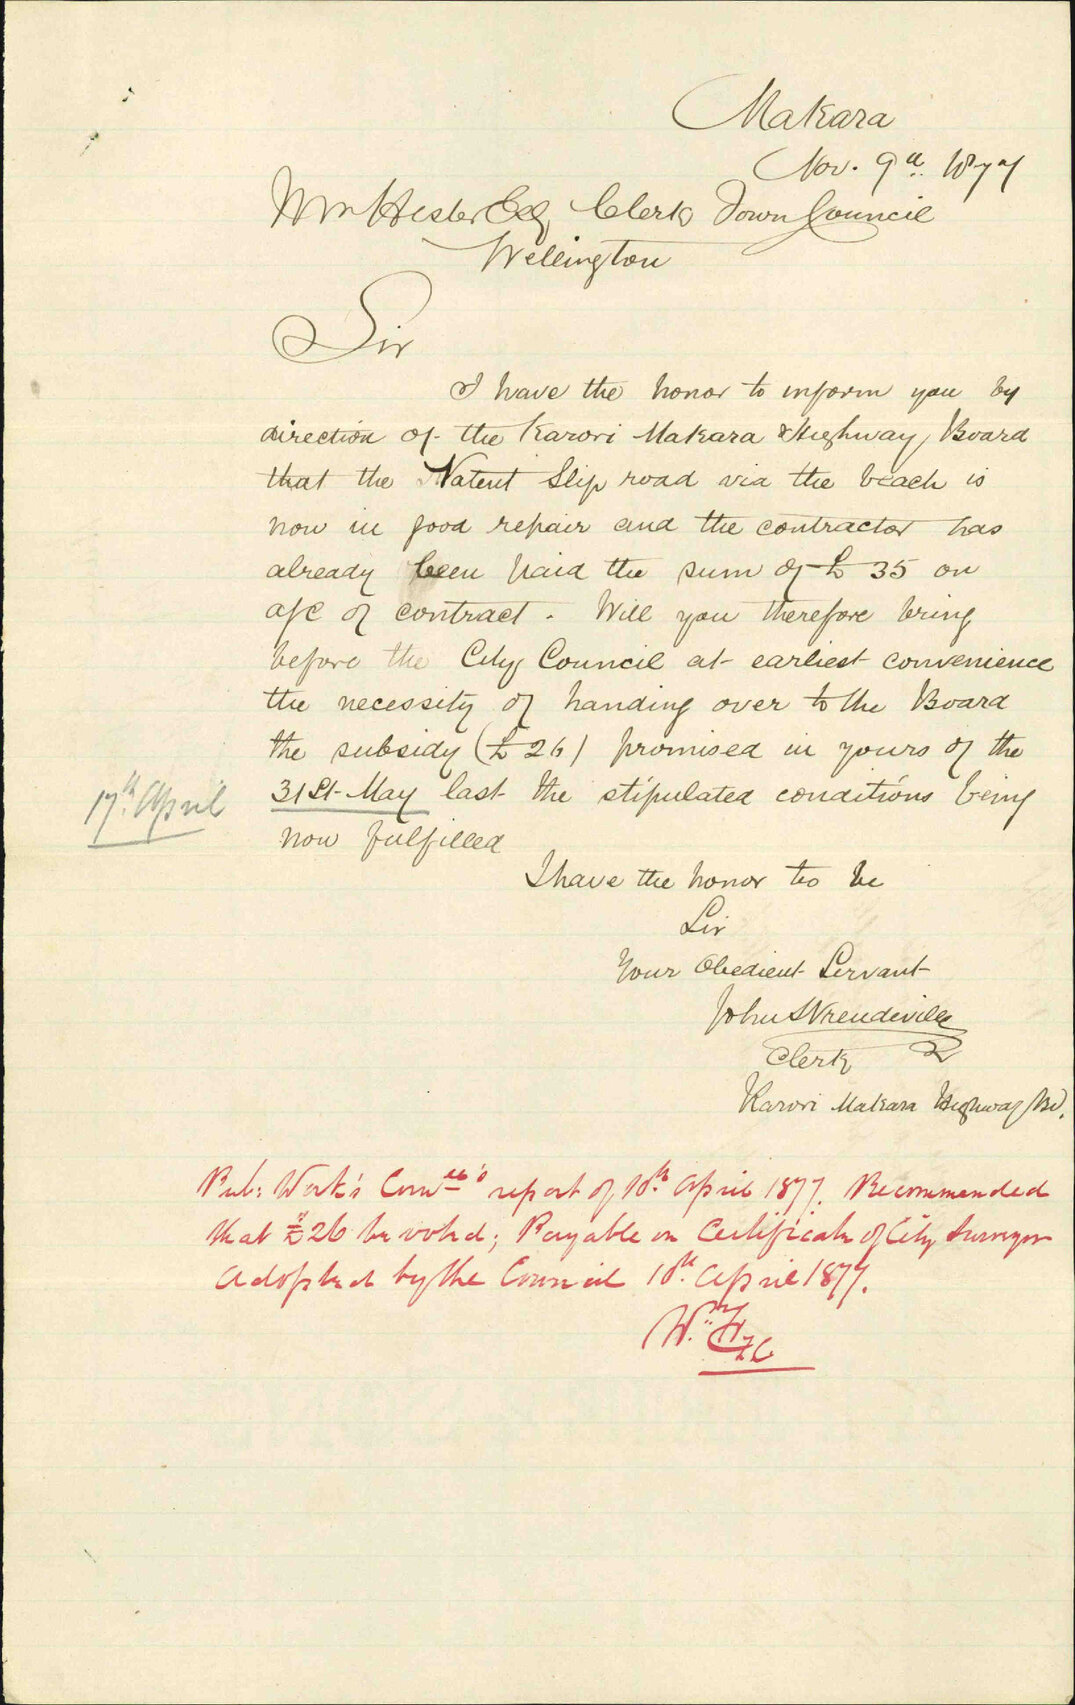 Makara
Nov. 9th 1877
Wm Hester Esq Clerk Town Council
Wellington
Sir
I have the honor to inform you by
direction of the Karori Makara Highway Board
that the Patent Slip road via the beach is
now in good repair and the contractor has
already been paid the sum of £ 35 on
a/c of contract. Will you therefore bring
before the City Council at earliest convenience
the necessity of handing over to the Board
the subsidy (£26) promised in yours of the
17th April
31st May last the stipulated conditions being
now fulfilled
I have the honor to be
Sir
Your Obedient Servant
John S
Clerk
Karori Makara Highway Bd.
Pub: Work's Comee's report of 10th April 1877. Recommended
that £26 be voted; Payable on Certificate of City Surveyor
Adopted by the Council 10th April 1877.
Wm H